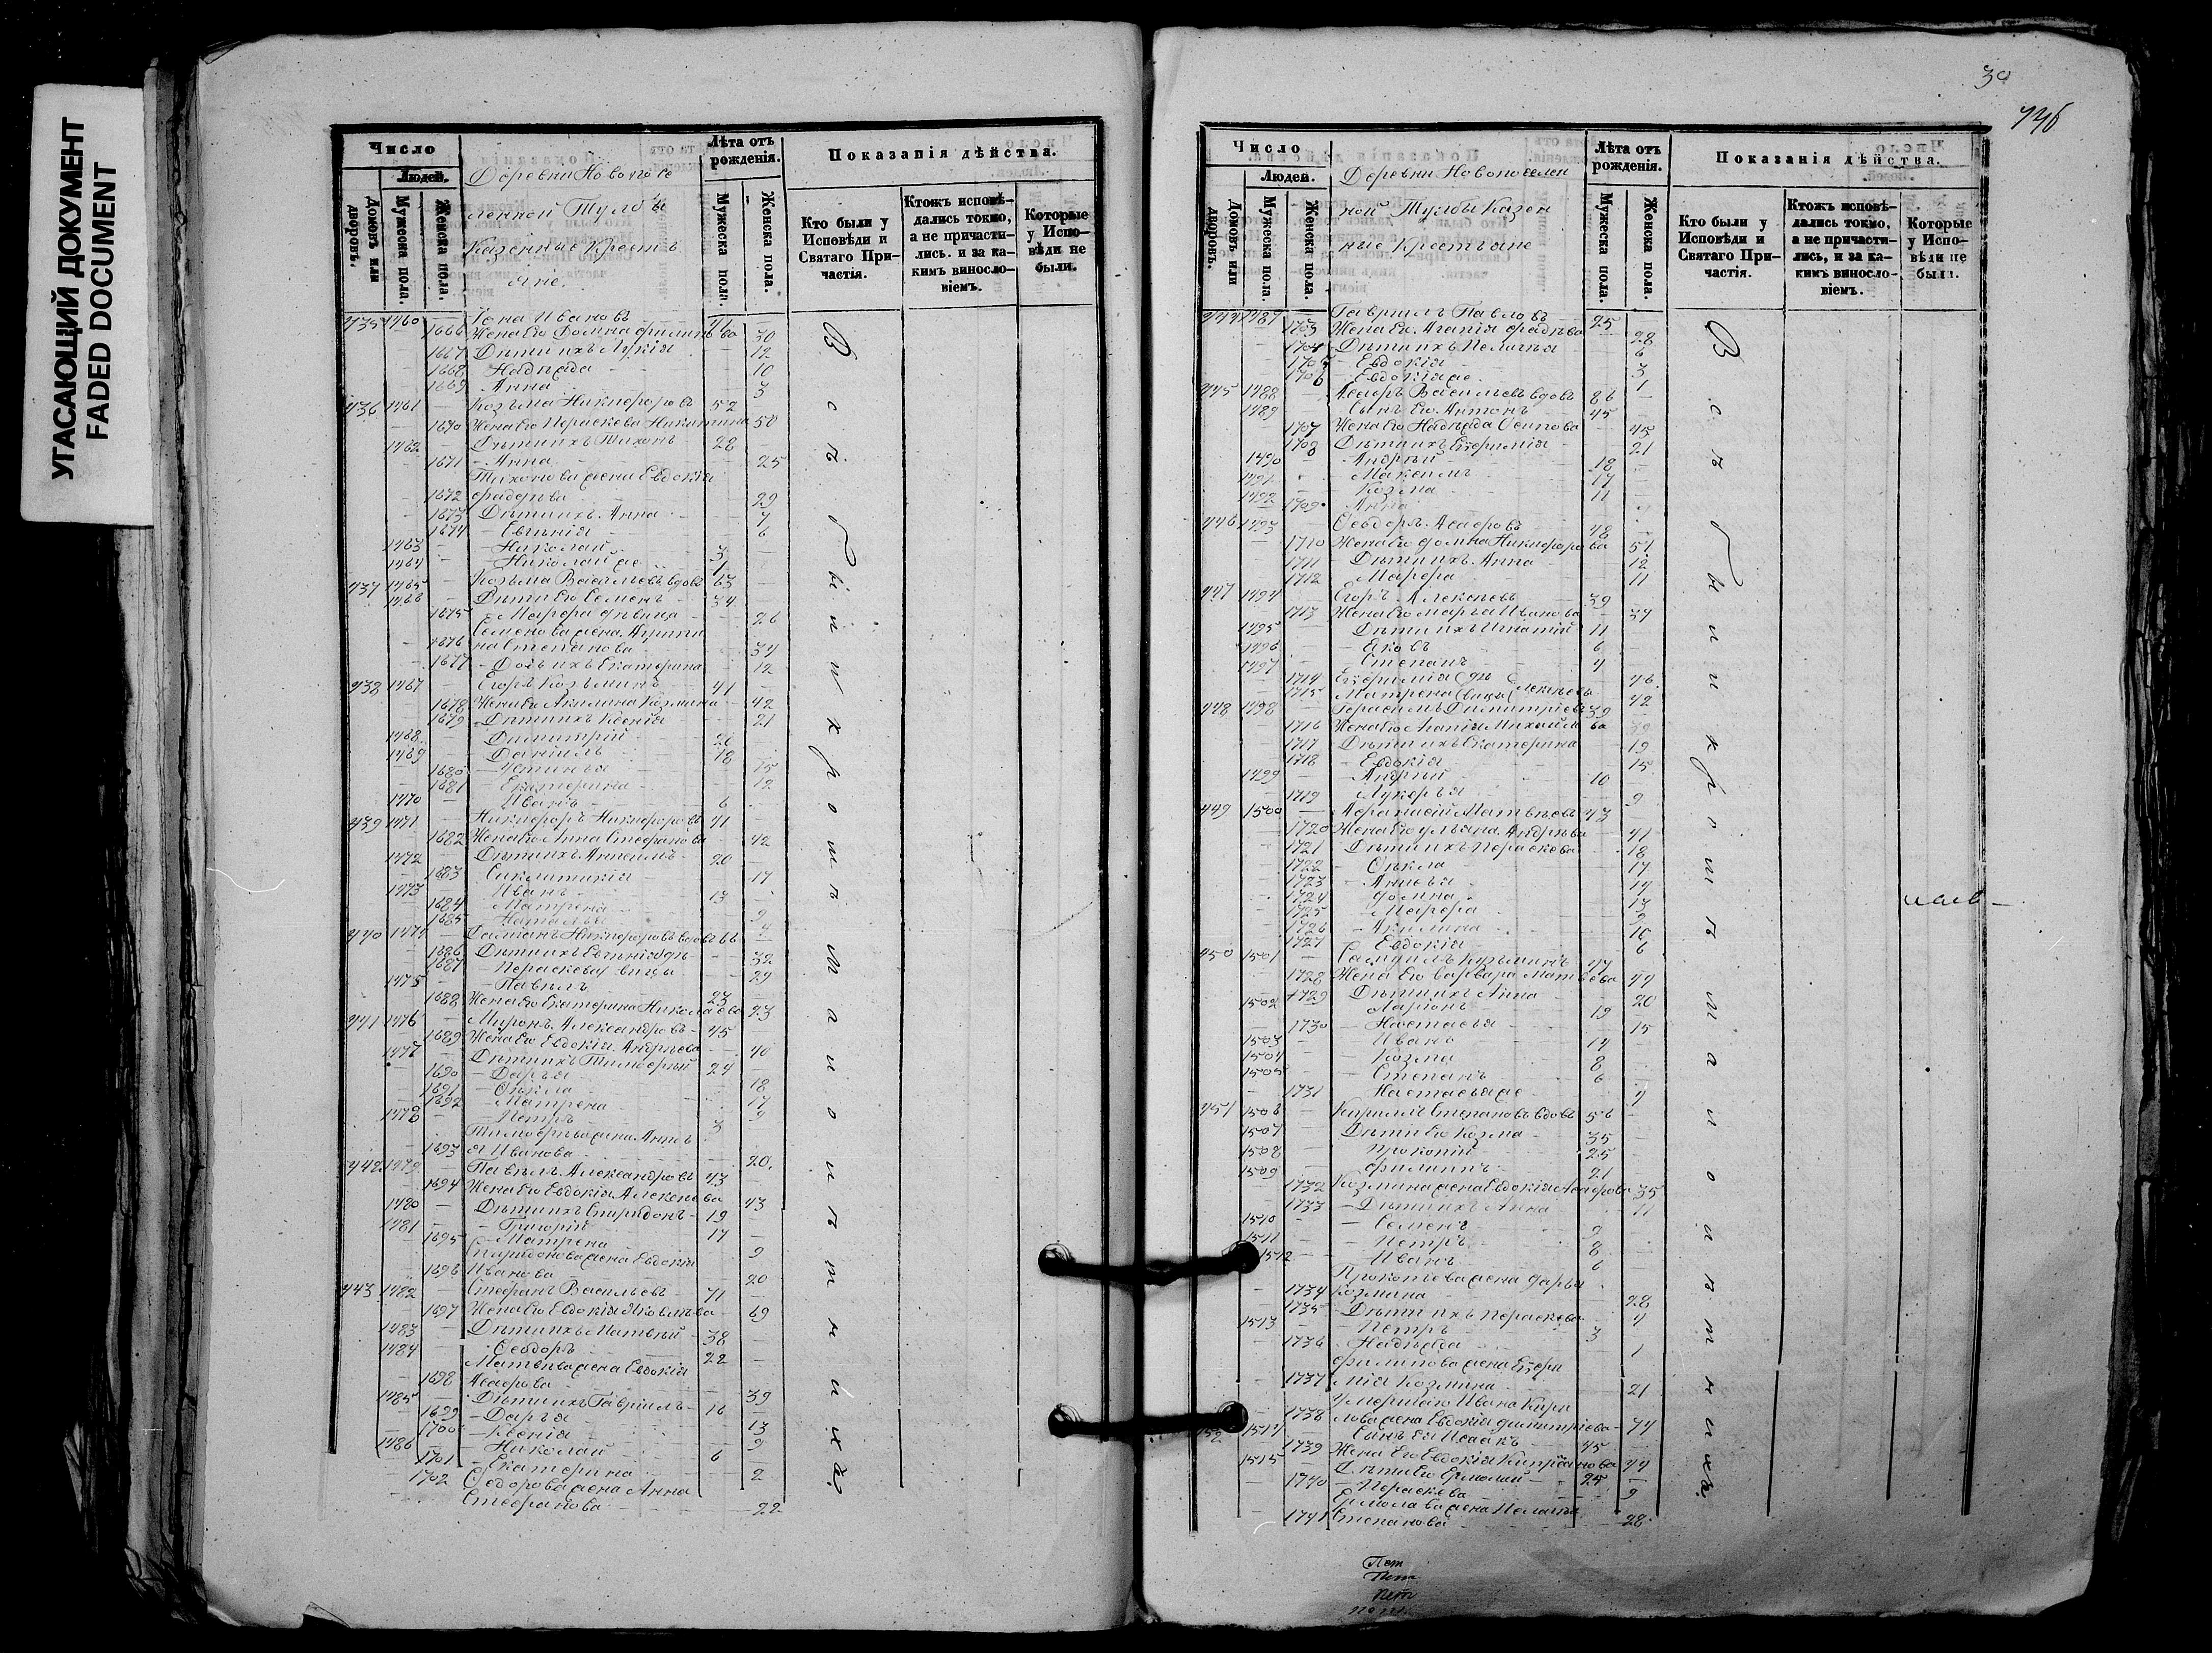 УГАСАЮЩИЙ ДОКУМЕНТ
FADED DOCUMENT
Число
Людей.
Домовъ или дворовъ.
Мужеска пола.
Женска пола.
Деревни Новопосе
ленной Тулобе
Казенные Крестъ
яне.
Лѣта отъ рожденія.
Мужеска пола.
Женска пола.
Показанія дѣйства.
Кто были у Исповѣди и Святаго Причастія.
Ктожъ исповѣдались токмо, а не причастились. и за какимъ винословіемъ.
Которые у Исповѣди не были.
435 1460 — Иона Ивановъ
1666 Жена его Домна Филипьва 30
1667 Дѣти ихъ Лукія 12
1668 Надежда 10
1669 Анна 3
436 1461 — Козьма Никифоровъ 52
1670 Жена его Пераскева Никитина 50
1462 Дѣти ихъ Тихонъ 28
1671 Анна 25
Тихонова жена Евдокія
1672 Фадеева 29
1673 Дѣти ихъ Анна 7
1674 Евгенія 6
1463 Николай 3
1464 Николай же 1
437 1465 — Козьма Васильевъ вдовъ 63
1466 Дѣти его Семенъ 34
1675 Марфа дѣвица 26
Семенова жена Агрипи
1676 на Степанова 34
1677 Дочь ихъ Екатерина 12
438 1467 — Егоръ Козьминъ 41
1678 Жена его Акилина Козмина 42
1679 Дѣти ихъ Ксенія 21
1468 Димитрій 20
1469 Даніилъ 18
1680 Устинья 15
1681 Екатерина 12
1470 Иванъ 6
439 1471 — Никифоръ Никифоровъ 41
1682 Жена его Анна Стефанова 42
1472 Дѣти ихъ Антипъ 20
1683 Синклитикія 17
1473 Иванъ 13
1684 Матрена 9
1685 Наталья 4
440 1474 — Даміанъ Никифоровъ вдовъ 66
1686 Дѣти ихъ Евгенія дѣ 32
1687 Пераскева вицы 29
1475 Павелъ 23
1688 Жена его Екатерина Николаева 23
441 1476 — Миронъ Александровъ 45
1689 Жена его Евдокія Андреева 40
1477 Дѣти ихъ Тимофей 24
1690 Дарья 18
1691 Ѳекла 17
1692 Матрена 9
1478 Петръ 3
Тимофеева жена Анись
1693 я Иванова 20
442 1479 — Павелъ Александровъ 43
1694 Жена его Евдокія Алексеева 43
1480 Дѣти ихъ Спиридонъ 19
1481 Григорій 17
1695 Матрена 9
Спиридонова жена Евдокія
1696 Иванова 20
443 1482 — Стефанъ Васильевъ 71
1697 Жена его Евдокія Яковлева 69
1483 Дѣти ихъ Матвей 38
1484 Ѳеодоръ 22
Матвева жена Евдокія
1698 Асафова 39
1485 Дѣти ихъ Гавріилъ 16
1699 Дарья 13
1700 Ксенія 9
1486 Николай 6
1701 Екатерина 2
1702 Ѳедорова жена Анна
Стефанова 22
Всѣ были и кромѣ малолѣтнихъ
30
Число
Людей.
Домовъ или дворовъ.
Мужеска пола.
Женска пола.
Деревни Новопоселен
ной Тулобе Казен
ные Крестьяне
Лѣта отъ рожденія.
Мужеска пола.
Женска пола.
Показанія дѣйства.
Кто были у Исповѣди и Святаго Причастія.
Ктожъ исповѣдались токмо, а не причастились, и за какимъ винословіемъ.
Которые у Исповѣди не были.
444 1487 Гавріилъ Павловъ 25
1703 Жена его Агапія Фадеева 28
1704 Дѣти ихъ Пелагія 6
1705 Евдокія 3
1706 Евдокія же 1
445 1488 — Асафъ Васильевъ вдовъ 86
1489 Сынъ его Антонъ 45
1707 Жена его Надежда Осипова 45
1708 Дѣти ихъ Евфимія 21
1490 Андрей 18
1491 Максимъ 17
1492 Козма 11
1709 Анна
446 1493 Ѳеодоръ Асафовъ 48
1710 Жена его Домна Никифорова 51
1711 Дѣти ихъ Анна 12
1712 Марфа 11
447 1494 Егоръ Алексеевъ 39
1713 Жена его Марѳа Иванова 37
1495 Дѣти ихъ Игнатій 11
1496 Яковъ 6
1497 Степанъ 4
1714 Евфимія дѣ 46
1715 Матрена вицы Алексеевы 42
448 1498 — Герасимъ Димитріевъ 39
1716 Жена его Агапія Михайлова 39
1717 Дѣти ихъ Екатерина 19
1718 Евдокія 15
1499 Андрей 10
1719 Лукерья 9
449 1500 — Афанасій Матвеевъ 43
1720 Жена его Ульяна Андреева 41
1721 Дѣти ихъ Пераскева 18
1722 Ѳекла 17
1723 Анисья 14
1724 Домна 13
1725 Марфа 9
1726 Акилина 10
1727 Евдокія 6
450 1501 — Самуилъ Кузьминъ 44
1728 Жена его Варвара Матвеева 44
1729 Дѣти ихъ Анна 20
1502 Ларіонъ 19
1730 Настасья 15
1503 Иванъ 14
1504 Козма 8
1505 Степанъ 6
1731 Настасья же 4
451 1506 Кирилъ Степановъ вдовъ 56
1507 Дѣти его Козма 35
1508 Прокопій 25
1509 Филиппъ 21
1732 Козмина жена Евдокія Асафова 35
1733 Дѣти ихъ Анна 11
1510 Семенъ 9
1511 Петръ 8
1512 Иванъ 6
Прокопьева жена Дарья
1734 Козмина 28
1735 Дѣти ихъ Пераскева 4
1513 Петръ 3
1736 Надежда 1
Филипова жена Евфи
1737 мія Козмина 21
Умершаго Ивана Кири
1738 лова жена Евдокія Димитріева 74
452 1514 Сынъ ея Исаакъ 45
1739 Жена его Евдокія Кипріанова 44
1515 Дѣти его Ермолай 25
1740 Пераскева 9
Ермолаева жена Пелагія
1741 Степанова 28
Всѣ были и кромѣ малолѣтнихъ
Пет
Пет
Пет